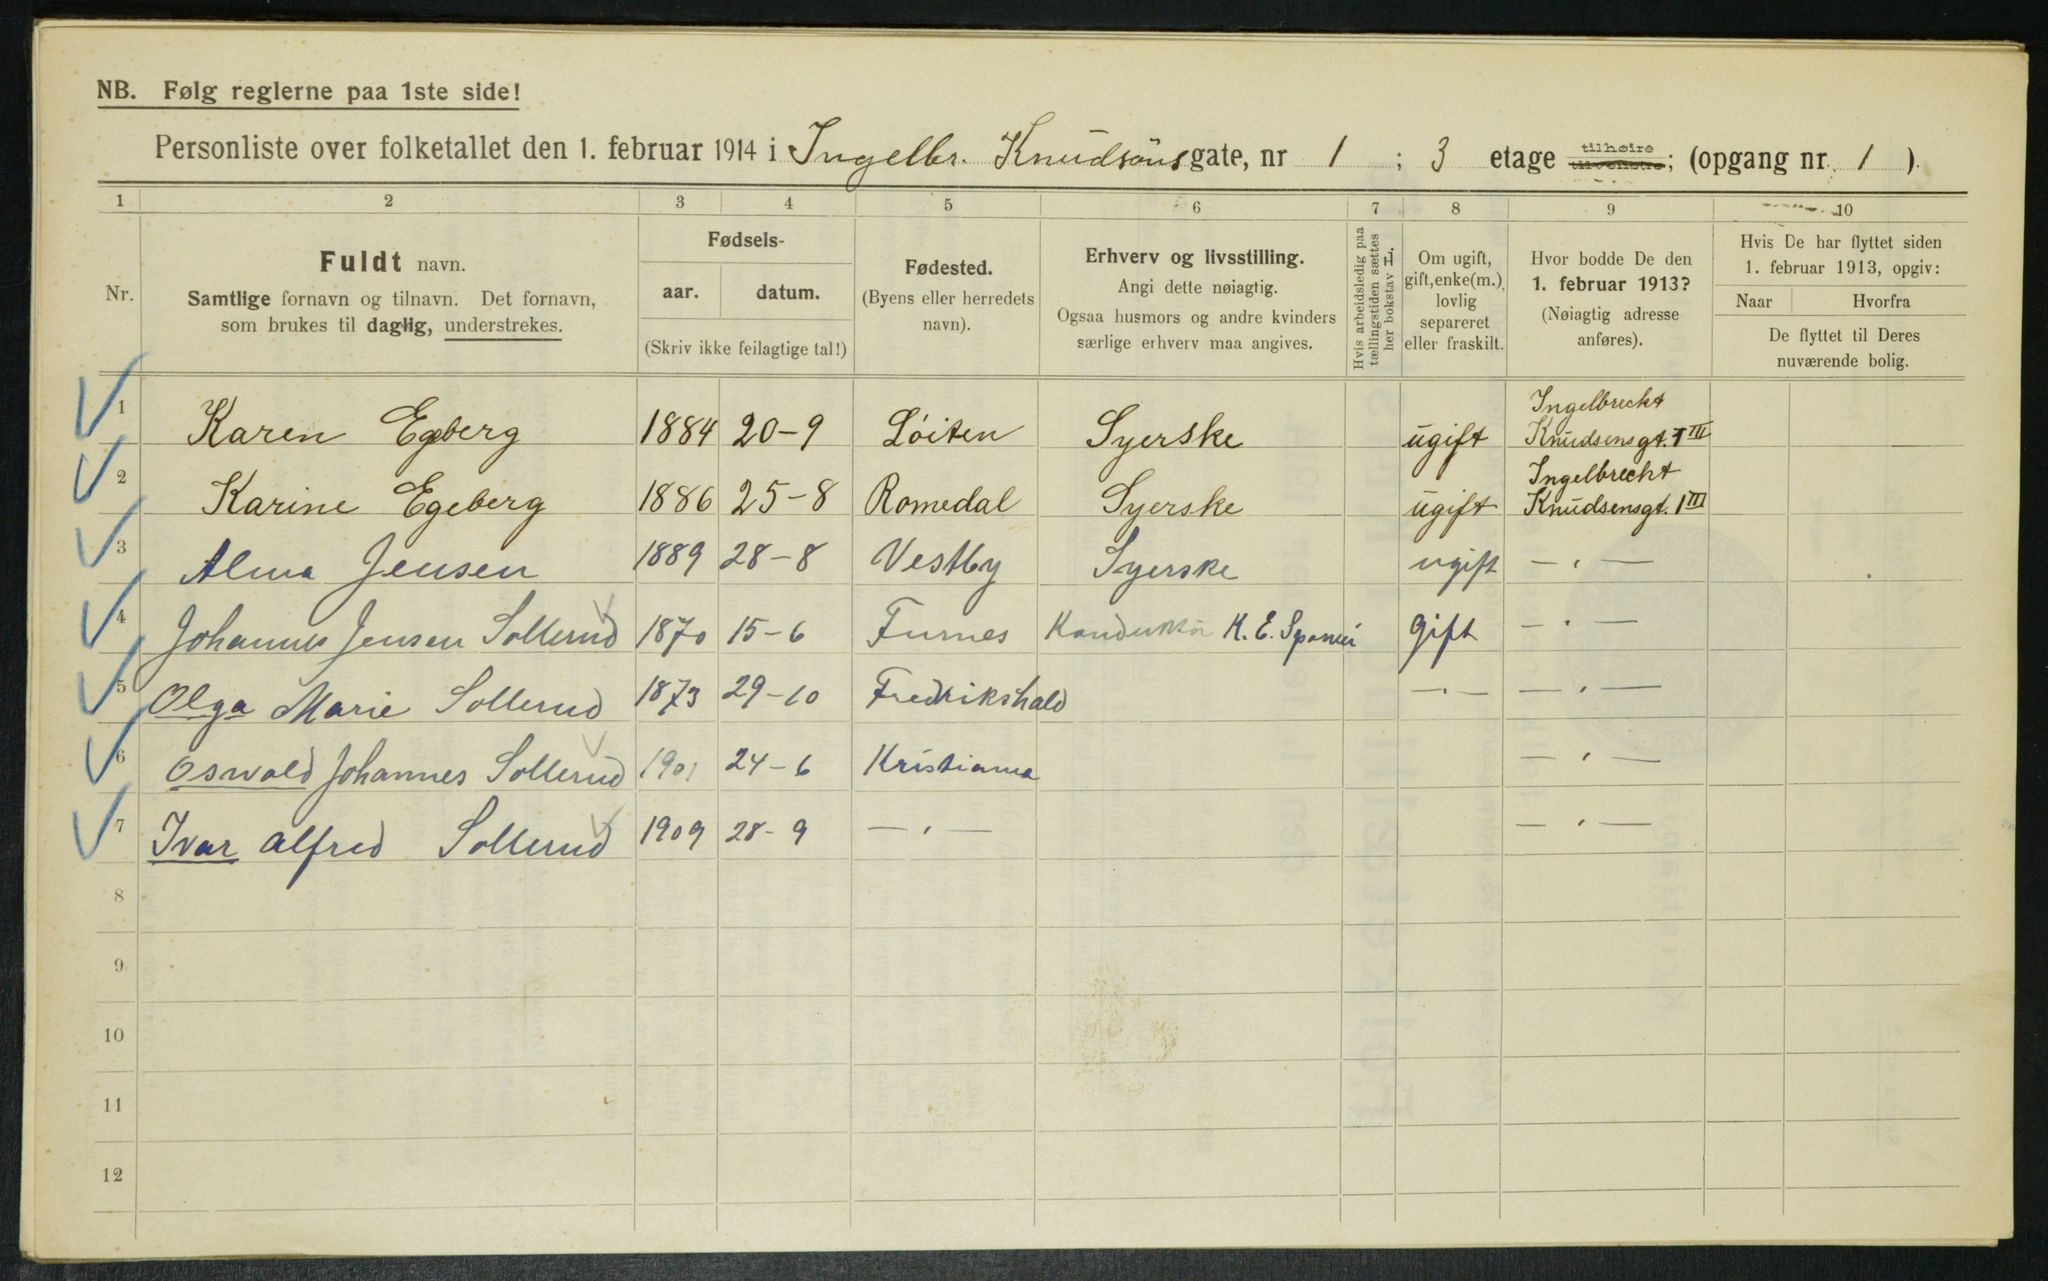 NB. Følg reglerne paa 1ste side!
Personliste over folketallet den 1. februar 1914 i Ingelbr. Knudsöns gate, nr 1 ; 3 etage tilhøire tilvenstre; (opgang nr. 1 ).
1 2 3 4 5 6 7 8 9 10
Nr.
Fuldt navn.
Samtlige fornavn og tilnavn. Det fornavn,
som brukes til daglig, understrekes.
Fødsels-
aar. datum.
(Skriv ikke feilagtige tal!)
Fødested.
(Byens eller herredets
navn).
Erhverv og livsstilling.
Angi dette nøiagtig.
Ogsaa husmors og andre kvinders
særlige erhverv maa angives.
Hvis arbeidsledig paa
tællingstiden sættes
her bokstav L.
Om ugift,
gift, enke(m.),
lovlig
separeret
eller fraskilt.
Hvor bodde De den
1. februar 1913?
(Nøiagtig adresse
anføres).
Hvis De har flyttet siden
1. februar 1913, opgiv:
Naar Hvorfra
De flyttet til Deres
nuværende bolig.
1 Karen Egeberg 1884 20-9 Löiten Syerske ugift Ingelbrecht
Knudsensgt. 1 III
2 Karine Egeberg 1886 25-8 Romedal Syerske ugift Ingelbrecht
Knudsensgt. 1 III
3 Alma Jensen 1889 28-8 Vestby Syerske ugift — „ —
4 Johannes Jensen Sollerud 1870 15-6 Furnes Konduktör K. E. Sporvei gift — „ —
5 Olga Marie Sollerud 1873 29-10 Fredrikshald — „ — — „ —
6 Oswald Johannes Sollerud 1901 24-6 Kristiania — „ —
7 Ivar Alfred Sollerud 1909 28-9 — „ — — „ —
8
9
10
11
12